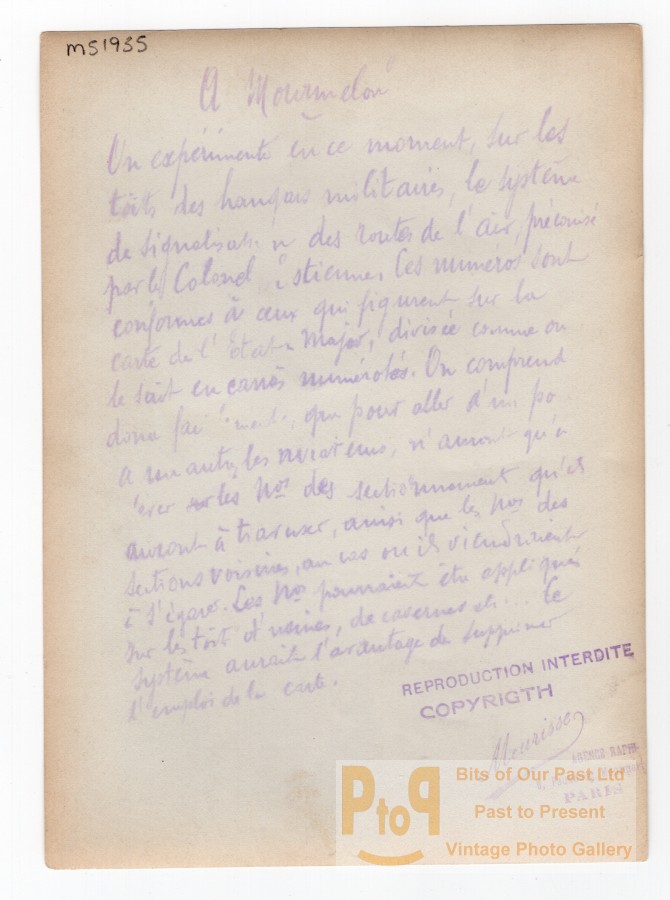 M51935
A Mourmelon
On expérimente en ce moment, sur les
toits des hangars militaires, le système
de signalisation des routes de l'air, préconisé
par le Colonel Estienne. Ces numéros sont
conformes à ceux qui figurent sur la
carte de l'Etat-Major, divisée comme on
le sait en carrés numérotés. On comprend
donc que pour aller d'un
à un autre, les aviateurs, n'auront qu'à
les Nos des sectionnement qu'ils
auront à traverser, ainsi que les Nos des
sections voisines, au cas où ils viendraient
à s'égarer. Les Nos pourraient être appliqués
sur les toit d'usines, de casernes etc... Ce
système aurait l'avantage de supprimer
l'emploi de la carte.
REPRODUCTION INTERDITE
COPYRIGTH
Meurisse
AGENCE
PARIS
PtoP
Bits of Our Past Ltd
Past to Present
Vintage Photo Gallery